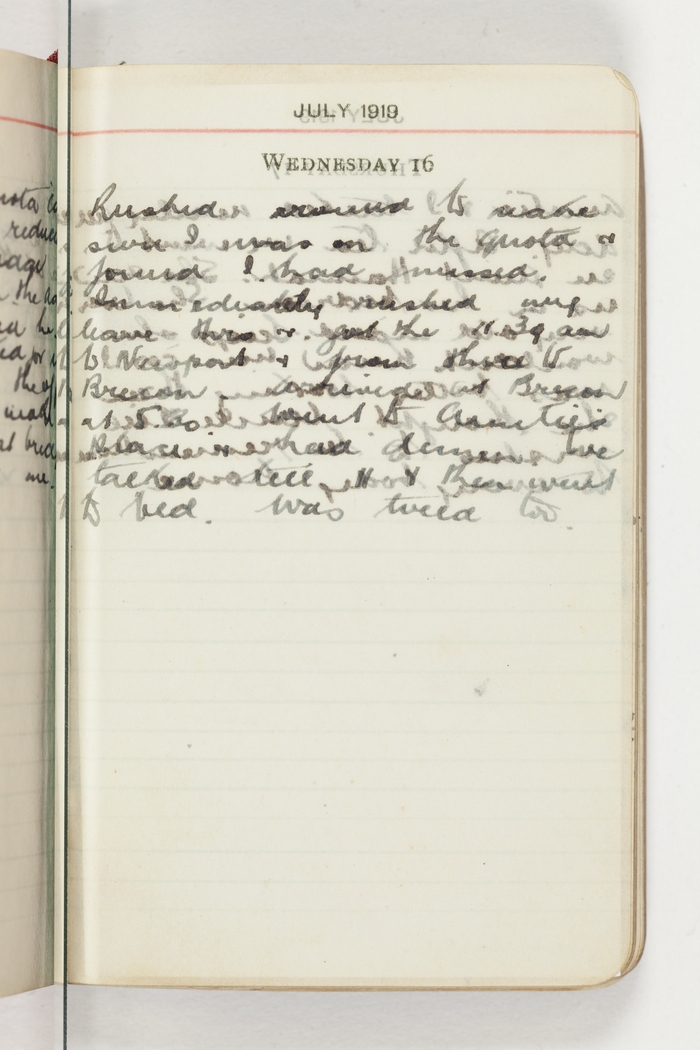 JULY 1919
WEDNESDAY 16
Rushed around to make
sure I was on the quota &
found I had missed.
Immediately rushed my
leave thro & got the 11.39 am
to Newport & from there to
Brecon. Arrived at Brecon
at 5. went to Aunties
Place & had dinner. We
talked till H & Bea went
to bed. Was tired too.
quota
reduce
the
me.